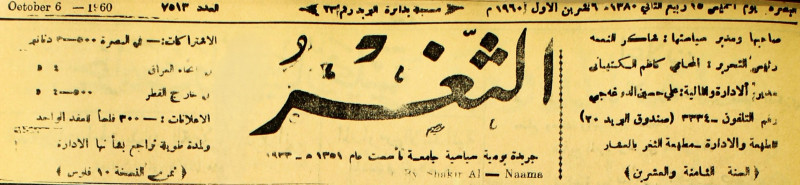 بصره: يوم الخميس ١٥ ربيع الثاني ١٣٨٠ - ٦ تشرين الاول ١٩٦٠ م
مسجلة بدائرة البريد رقم ٢٣
العدد ٧٥١٣
October 6 - 1960
صاحبها ومدير سياستها : شاكر النعمه
رئيس التحرير : المحامي كاظم
مدير الادارة والمالية : علي حسين
رقم التلفون - ٣٣٣٤ (صندوق البريد ٢٠)
المطبعة والادارة - مطبعة الثغر بالعشار
﴿ السنة الثامنة والعشرين ﴾
الثغر
جريدة يومية سياسية جامعة تأسست عام ١٣٥١ ه - ١٩٣٣
By Shakir Al - Naama
الاشتراكات : - في البصرة ٣٠٠٠ دنانير
في انحاء العراق ٤ ٥
في خارج القطر ٥٠٠ - ٤ ٥
الاعلانات : - ٣٠٠ فلساً للعقد الواحد
ولمدة طويلة تراجع بشأنها الادارة
﴿ ثمن النسخة ١٠ فلوس ﴾